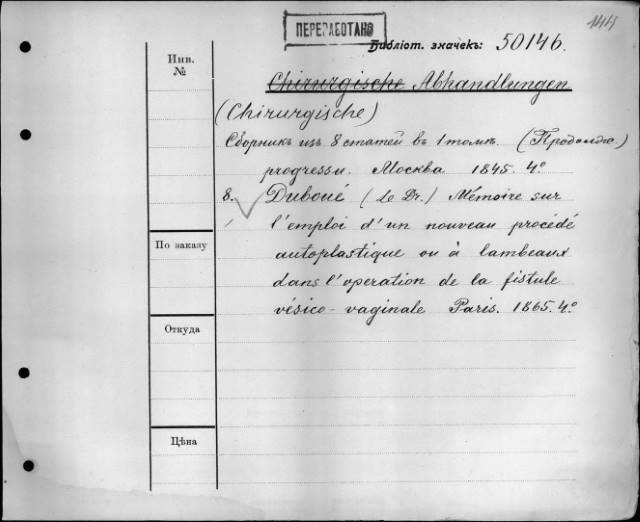 ПЕРЕРАБОТАНО
Библіот. значекъ: 50146.
Инв.
№
Chirurgische Abhandlungen
(Chirurgische)
Сборникъ изъ 8 статей въ 1 томѣ. (Продолж.)
progressu. Москва 1845. 4°
8. Duboué (Le Dr.) Mémoire sur
l'emploi d'un nouveau procédé
По заказу
autoplastique ou à lambeaux
dans l'operation de la fistule
vésico-vaginale Paris. 1865. 4°
Откуда
Цѣна